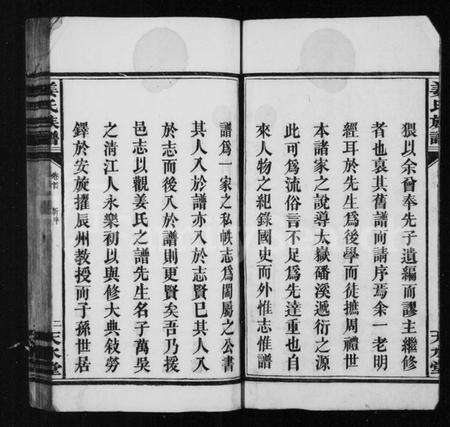 姜氏族譜
猥以余曾奉先子遺編而謬主繼修
者也哀其舊譜而請序焉余一老明
經耳於先生爲後學而徒摭周禮世
本諸家之說導太嶽磻溪遞衍之源
此可爲流俗言不足爲先達重也自
來人物之紀錄國史而外惟志惟譜
天水堂
姜氏族譜
卷首
譜爲一家之私帙志爲闔屬之公書
其人入於譜亦入於志賢已其人入
於志而後入於譜則更賢矣吾乃援
邑志以觀姜氏之譜先生名子萬吳
之清江人永樂初以與修大典敍勞
鐸於安旋擢辰州教授而子孫世居
二
天水堂